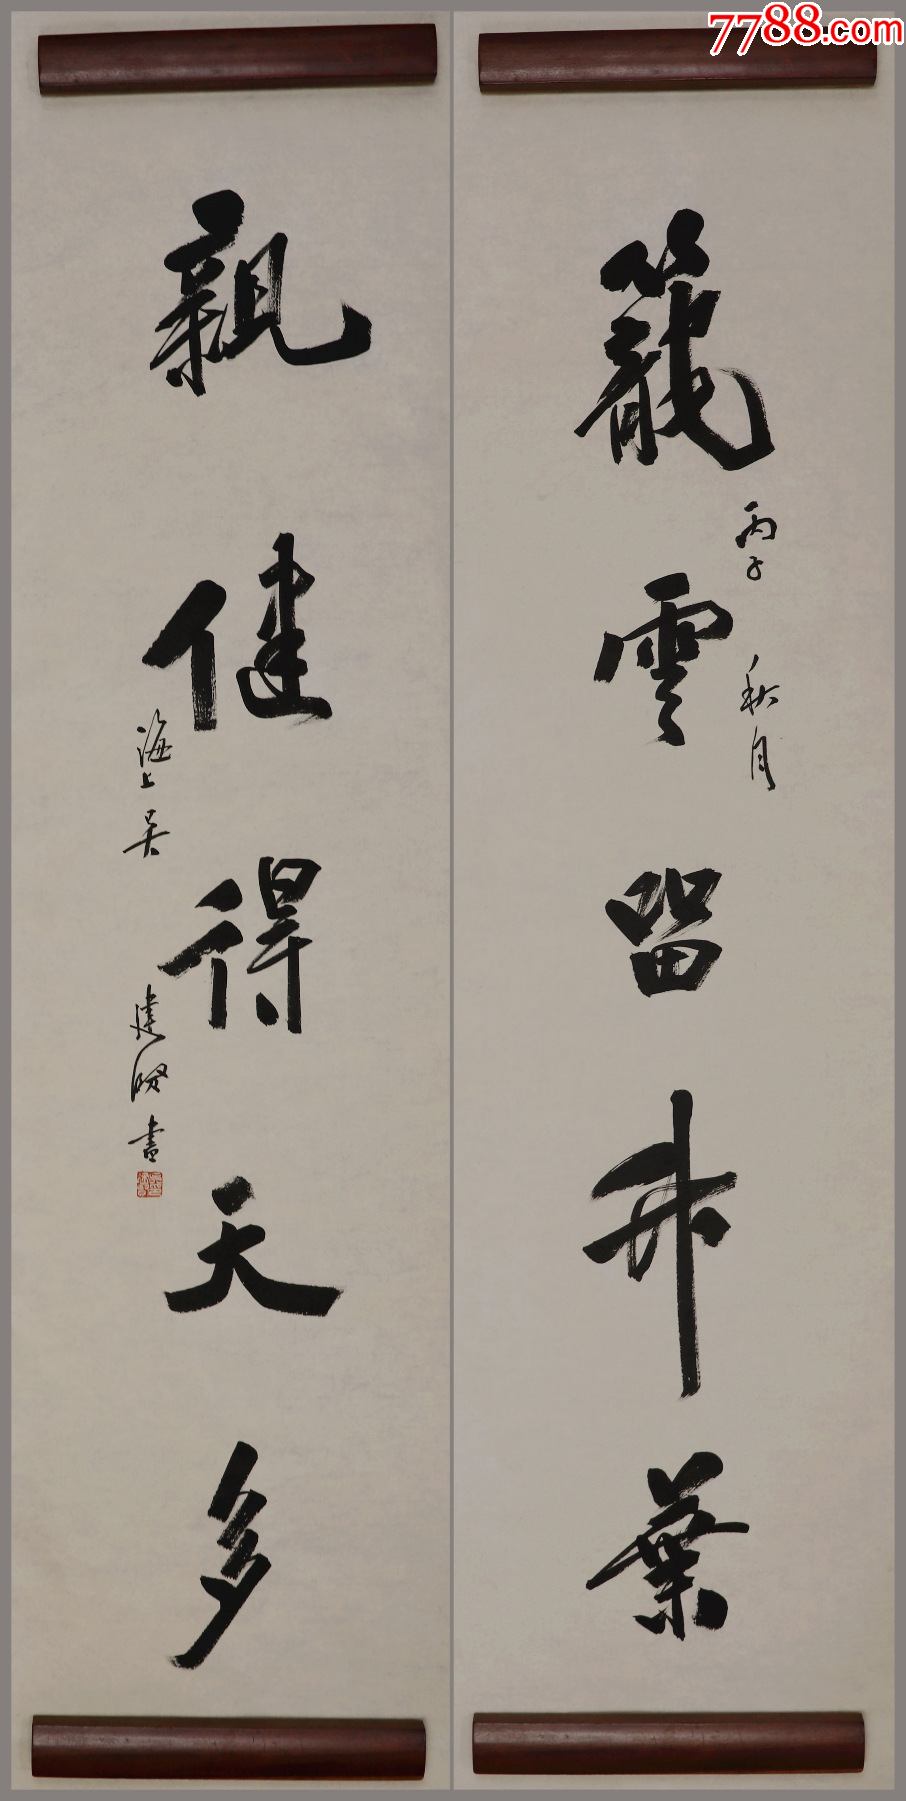 7788.com
籠雲留竹葉
丙子 秋月
親健得天多
海上吳 建賢書